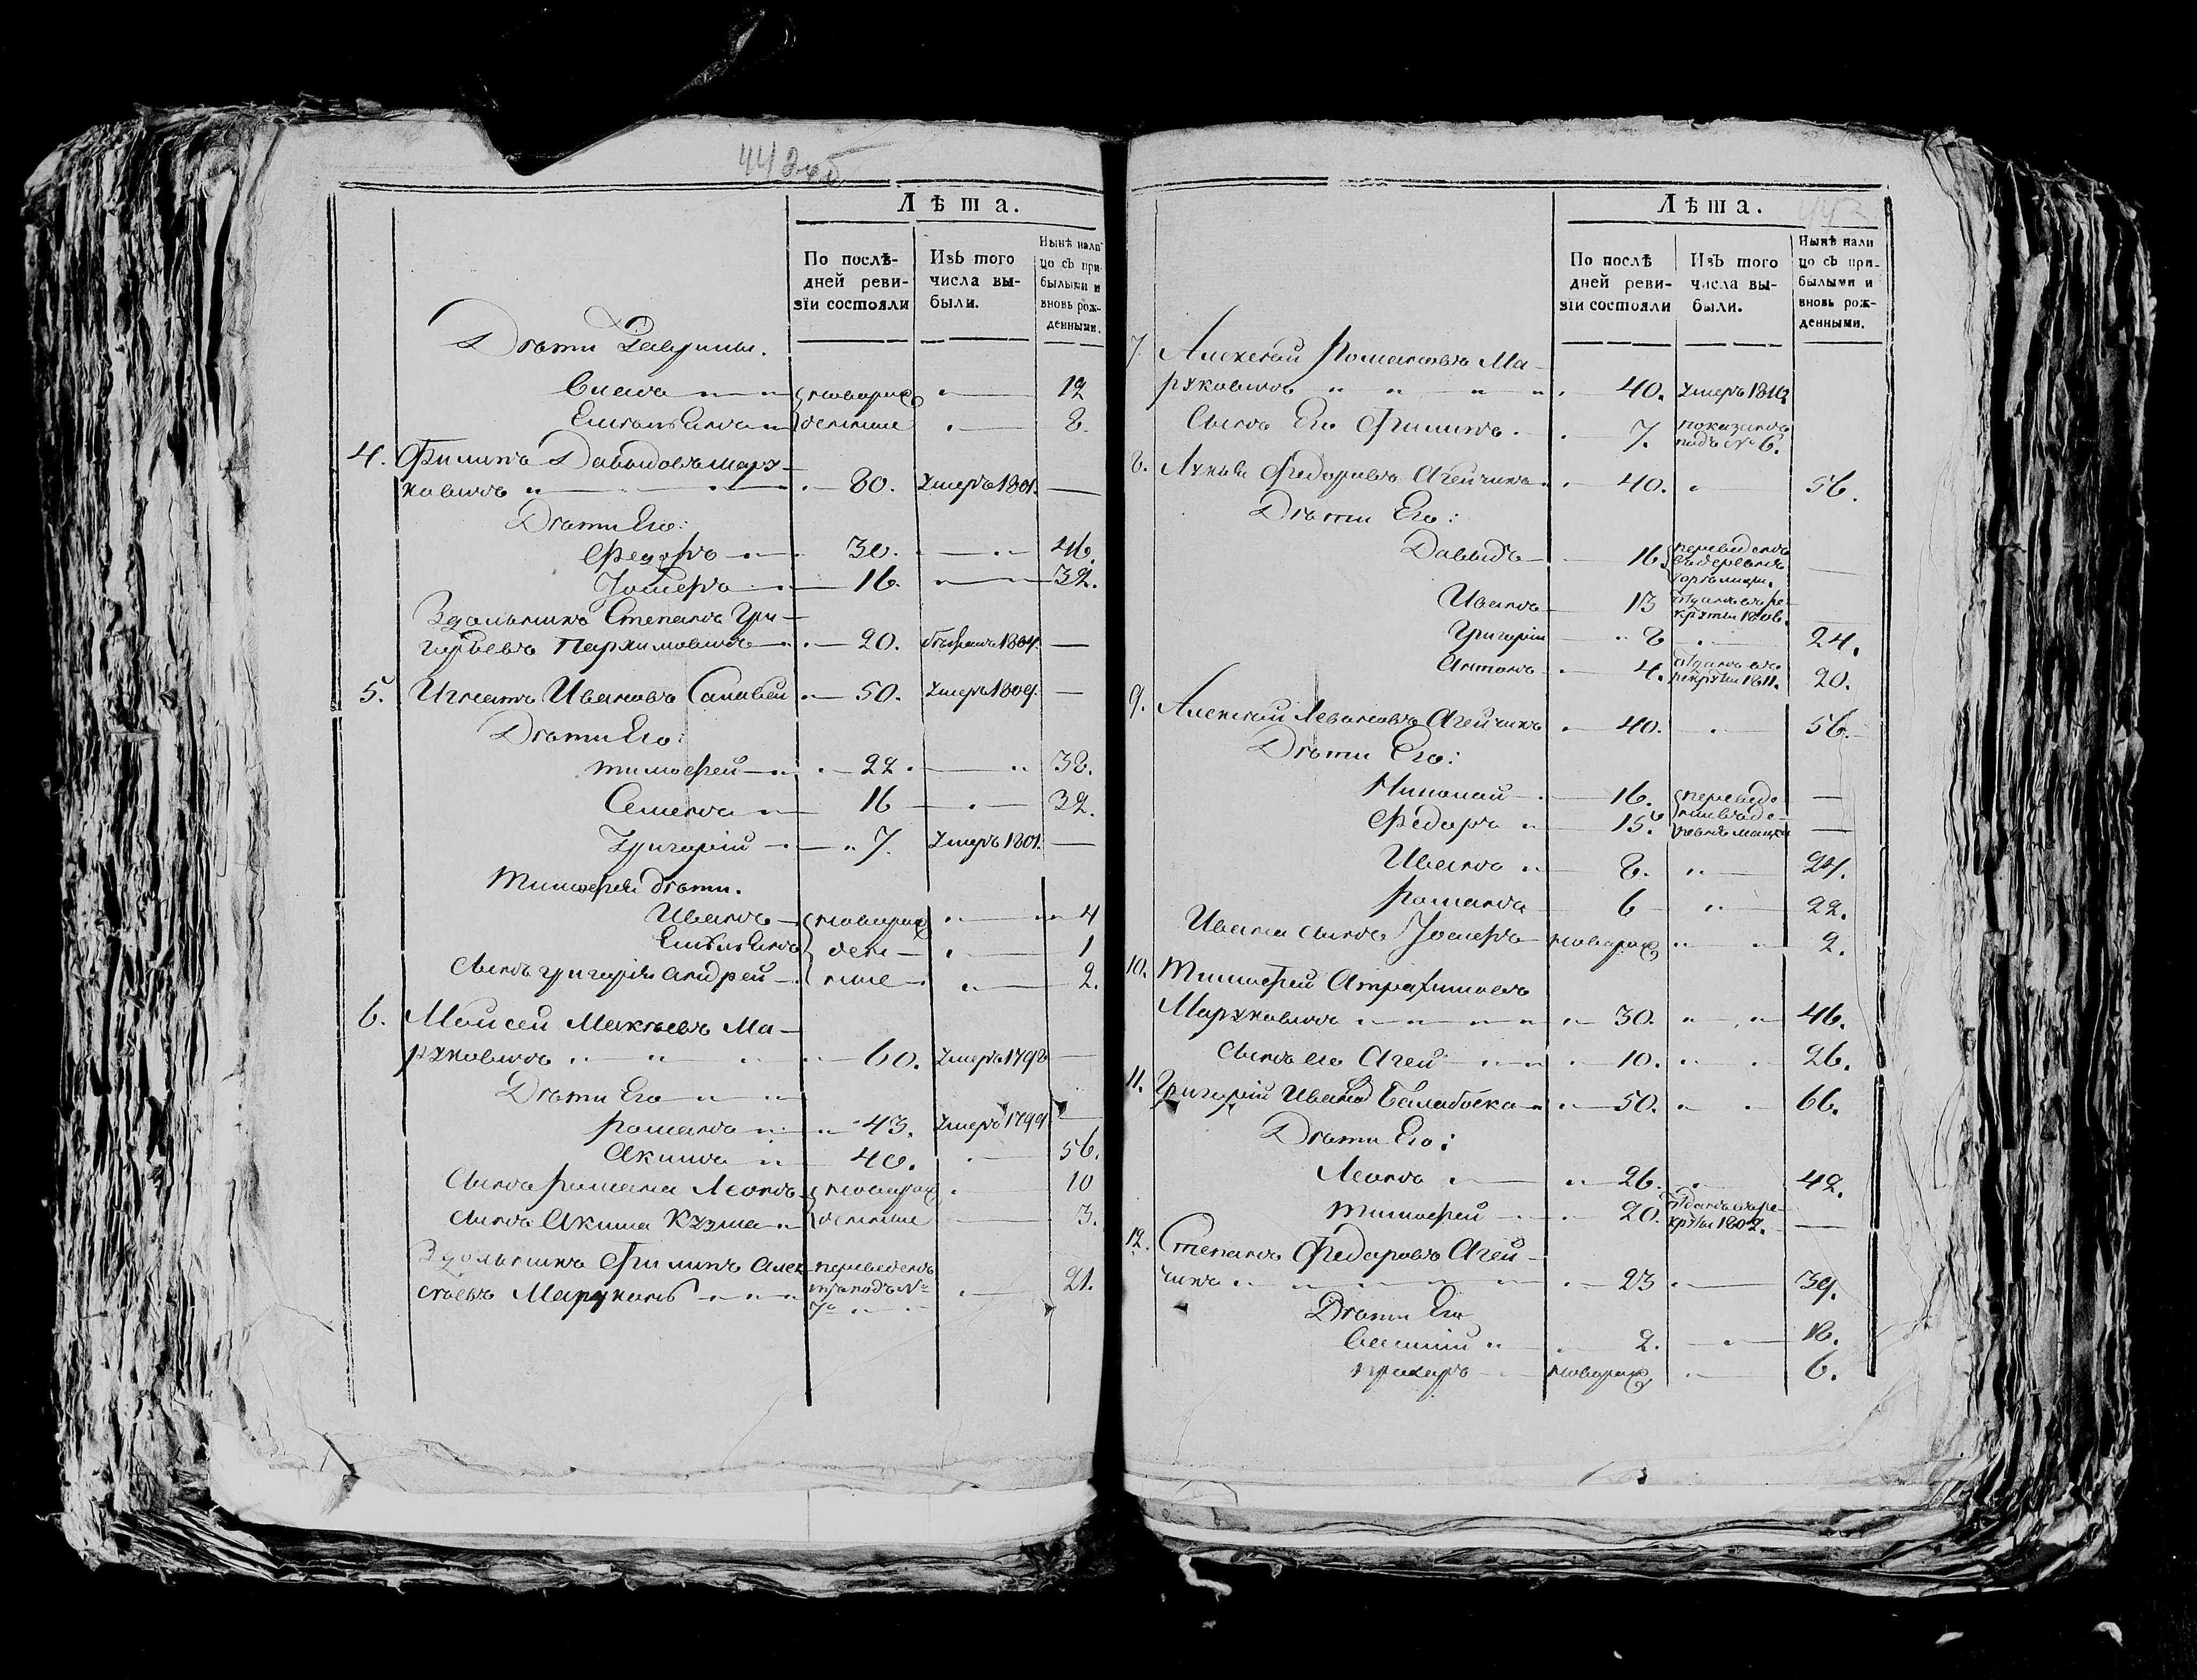 442 об
Лѣта.
По послѣ-
дней реви-
зїи состояли
Изъ того
числа вы-
были.
Нынѣ нали
цо съ при-
былыми и
вновь рож-
денными.
Дѣти
новорож
денные
12
8.
4. Филипъ Давыдовъ Мару-
ковичъ 80. умеръ 1801.
Дѣти Его:
30. 46.
Іосифъ 16. 32.
Здольникъ Степанъ Гри-
горьевъ Пархимовичъ 20. 1804.
5. Игнатъ Ивановъ Салавей 50. умеръ 1809.
Дѣти Его:
Тимофей 22. 38.
Семенъ 16 32.
Григорій 7. умеръ 1801.
Тимофея дѣти.
Иванъ новорож 4
Емельянъ ден 1
Сынъ Григорія Андрей ные 2.
6. Моисей Макѣевъ Ма-
руковичъ 60. умеръ 1798
Дѣти Его
Романъ 43. умеръ 1799
Акимъ 40. 56.
Сынъ Романа Леонъ новорож 10
Сынъ Акима Кузма денные 3.
Здольникъ Филипъ Алек переведенъ
сѣевъ подъ № 21.
7
443
Лѣта.
По послѣ
дней реви-
зїи состояли
Изъ того
числа вы-
были.
Нынѣ нали
цо съ при-
былыми и
вновь рож-
денными.
7. Алексѣй Романовъ Ма-
руковичъ 40. умеръ 1810.
Сынъ Его Филипъ. 7. показанъ
подъ № 6.
8. Лукьянъ Федоровъ Агейчикъ 40. 56.
Дѣти Его:
Давыдъ 16. переведенъ
въ деревню
Иванъ 13 отданъ въ ре-
круты 1806.
Григорій 8 24.
Антонъ 4. отданъ въ
рекруты 1811. 20.
9. Алексѣй Левоновъ Агейчикъ 40. 56.
Дѣти Его:
Николай 16. переведе
Федоръ 15. ны въ де-
ревню
Иванъ 8. 24.
Романъ 6 22.
Ивана сынъ Іосифъ новорож 2.
10. Тимофей
Маруковичъ 30. 46.
Сынъ его Агей 10. 26.
11. Григорій Иванов Балабоска 50. 66.
Дѣти Его:
Леонъ 26. 42.
Тимофей 20. отданъ въ ре-
круты 1802.
12. Степанъ Федоровъ Агей-
чикъ 23 39.
Дѣти Его
Василій 2. 18.
новорож 6.